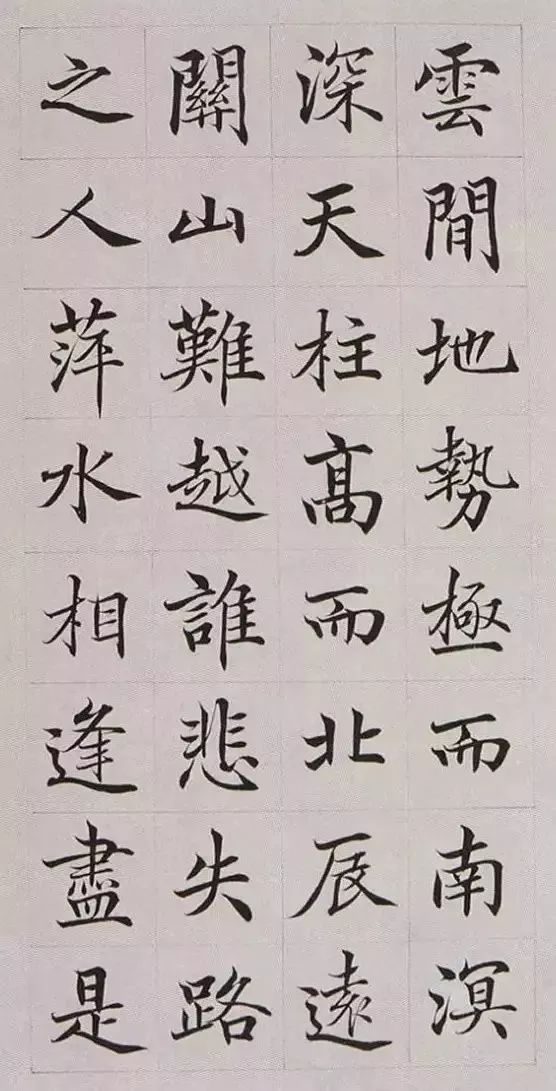 雲間地勢極而南溟
深天柱髙而北辰遠
關山難越誰悲失路
之人萍水相逢盡是